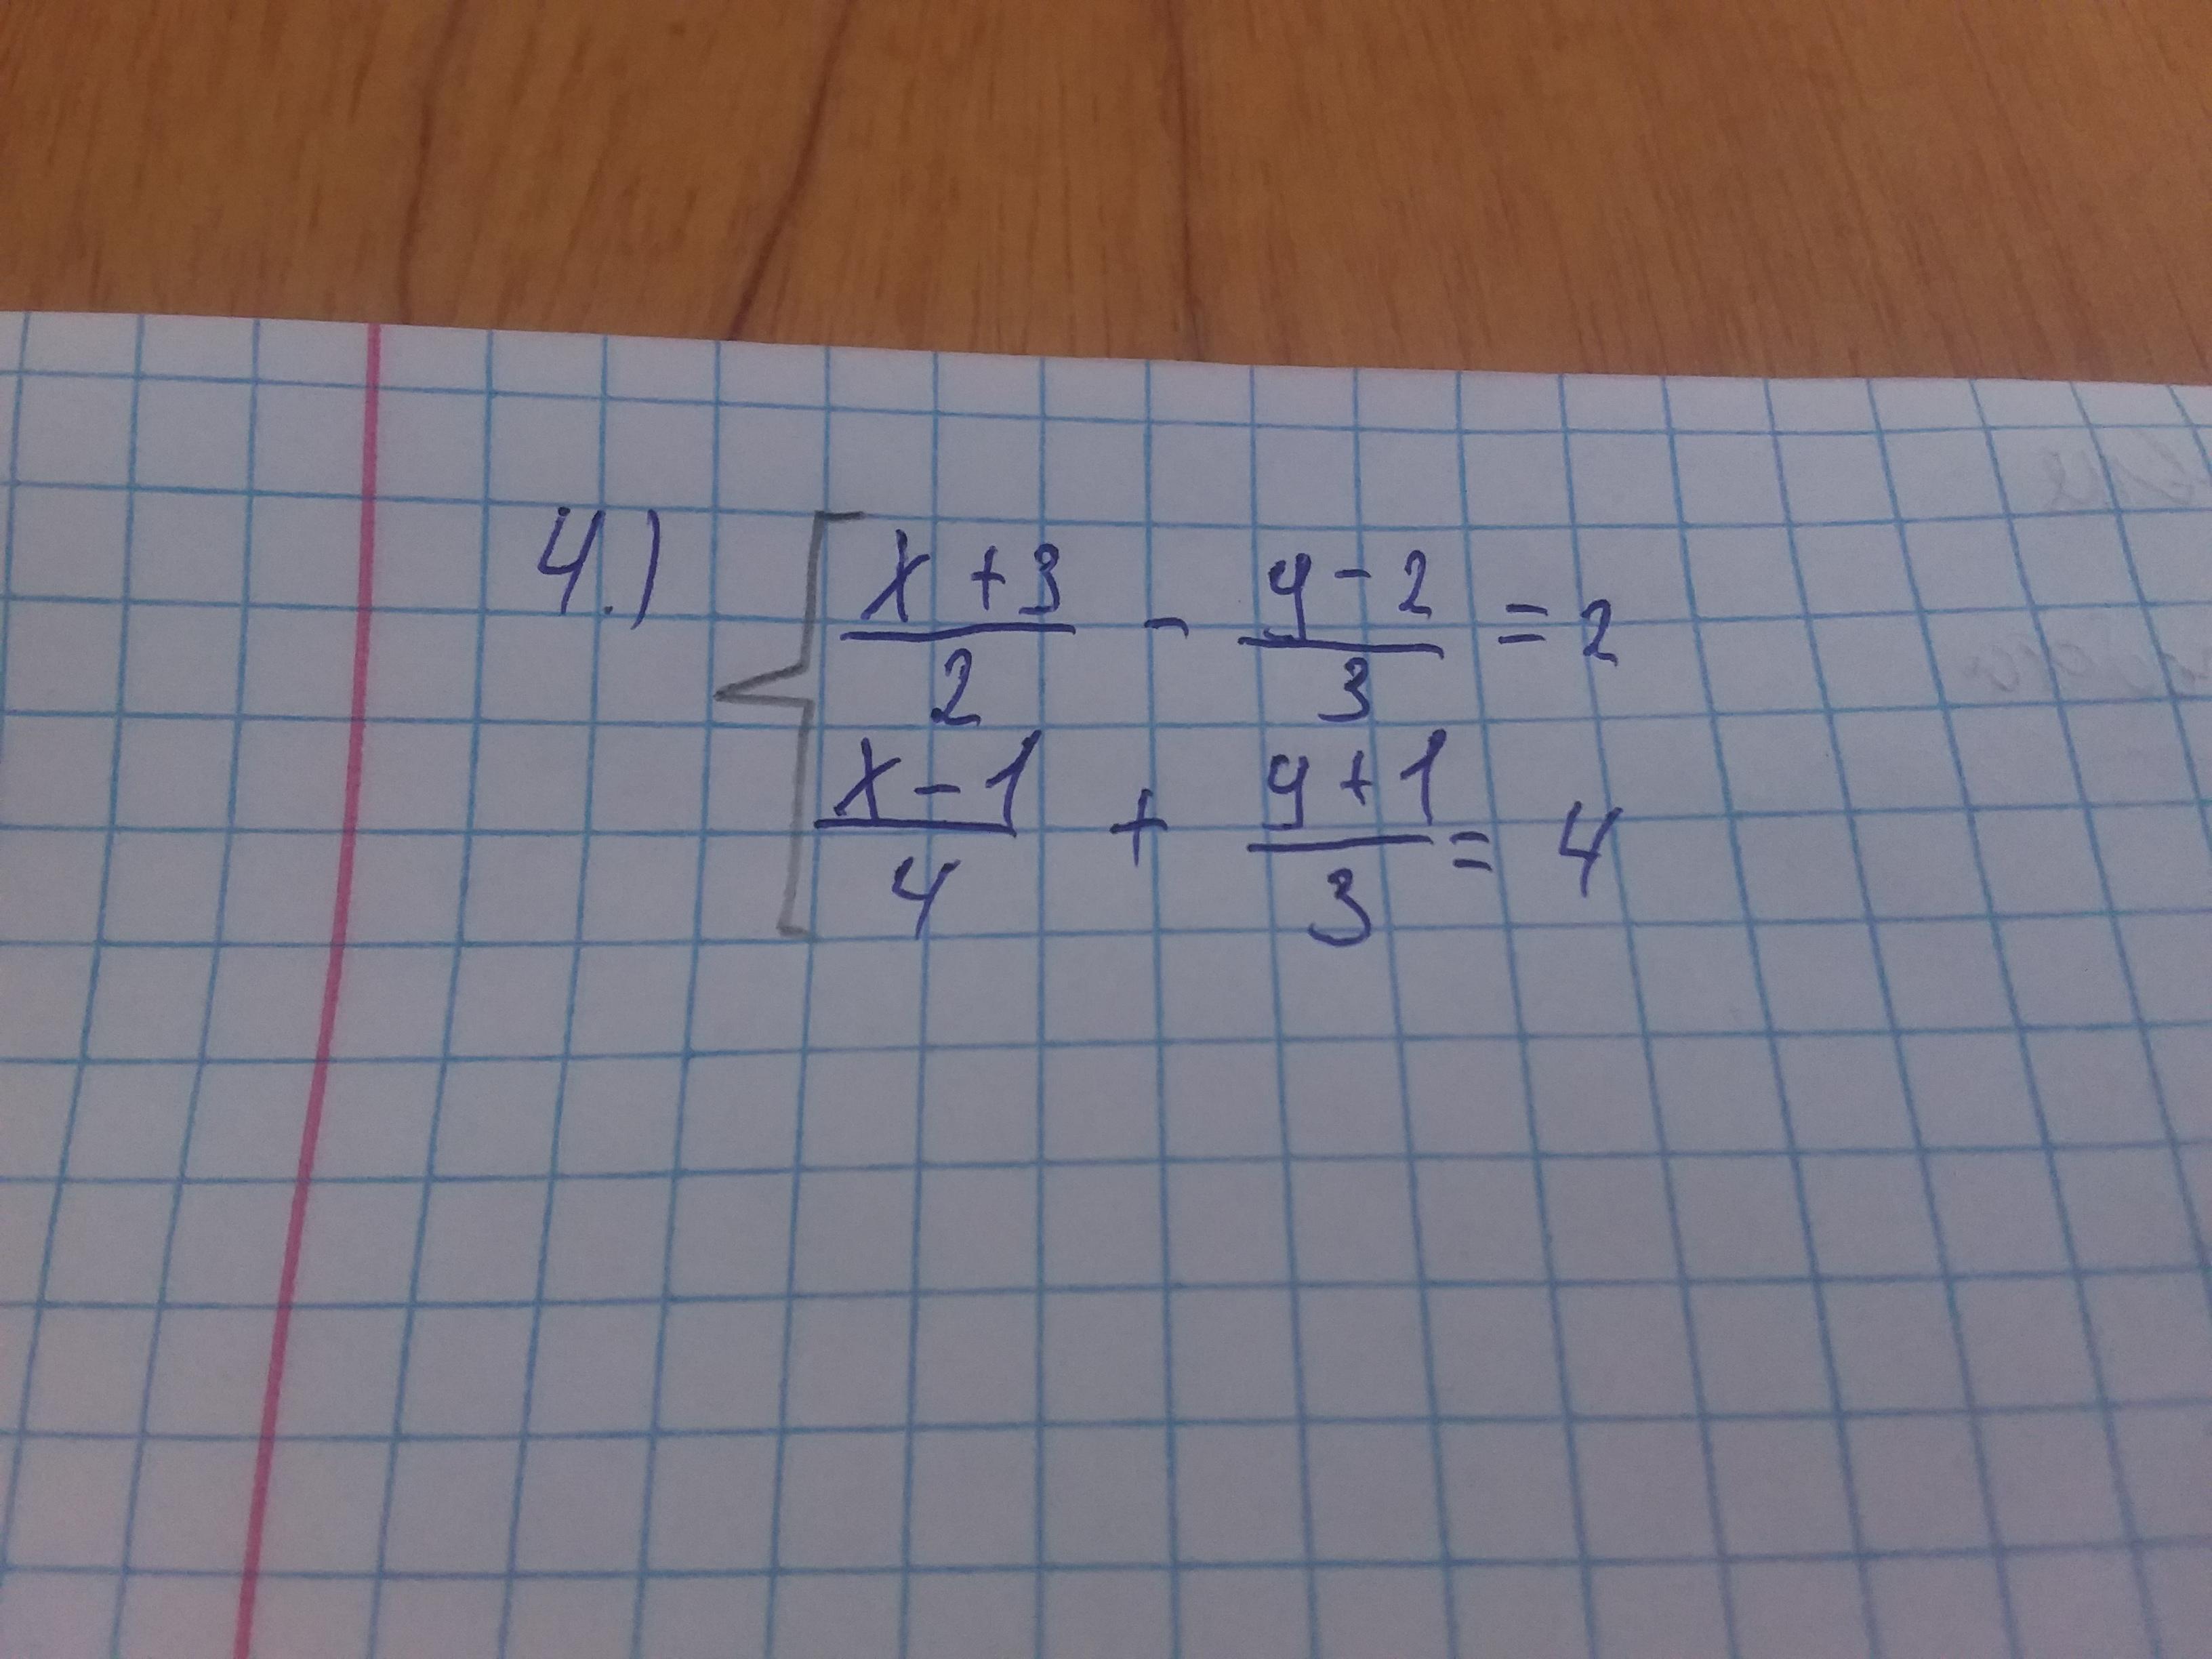 4.) { (x + 3)/2 - (y - 2)/3 = 2
(x - 1)/4 + (y + 1)/3 = 4